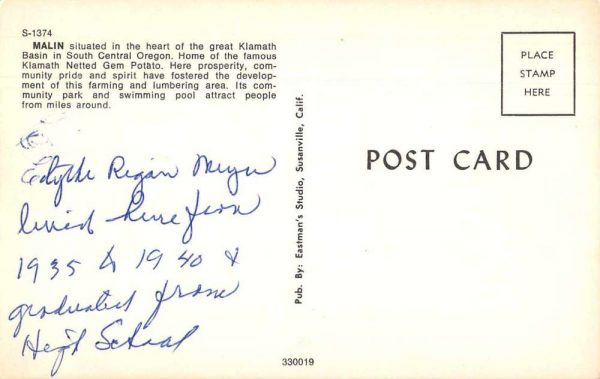 S-1374
MALIN situated in the heart of the great Klamath
Basin in South Central Oregon. Home of the famous
Klamath Netted Gem Potato. Here prosperity, com-
munity pride and spirit have fostered the develop-
ment of this farming and lumbering area. Its com-
munity park and swimming pool attract people
from miles around.
PLACE
STAMP
HERE
POST CARD
Pub. By: Eastman's Studio, Susanville, Calif.
Edythe Regan Meyer
lived here from
1935 to 1940 &
graduated from
High School
330019